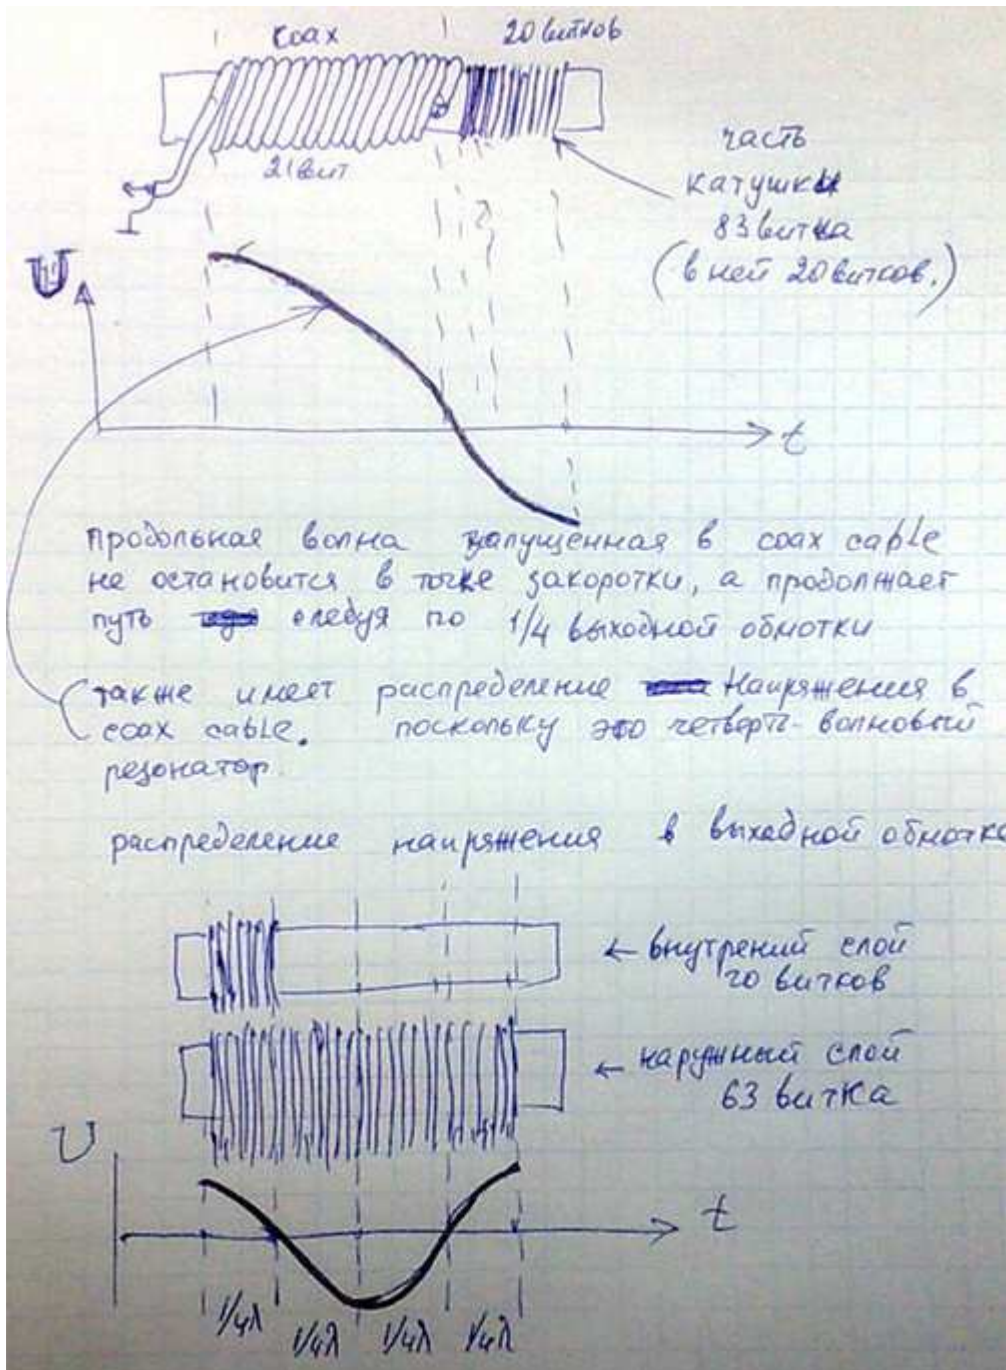 коах
20 витков
21 вит
часть
катушки
83 витка
(в ней 20 витков.)
U
t
продольная волна запущенная в coax cable
не остановится в точке закоротки, а продолжает
путь следуя по 1/4 выходной обмотки
также имеет распределение Напряжения в
coax cable. поскольку это четверть-волновый
резонатор.
распределение напряжения в выходной обмотке
← внутрений слой
20 витков
← наружный слой
63 витка
U
t
1/4λ 1/4λ 1/4λ 1/4λ